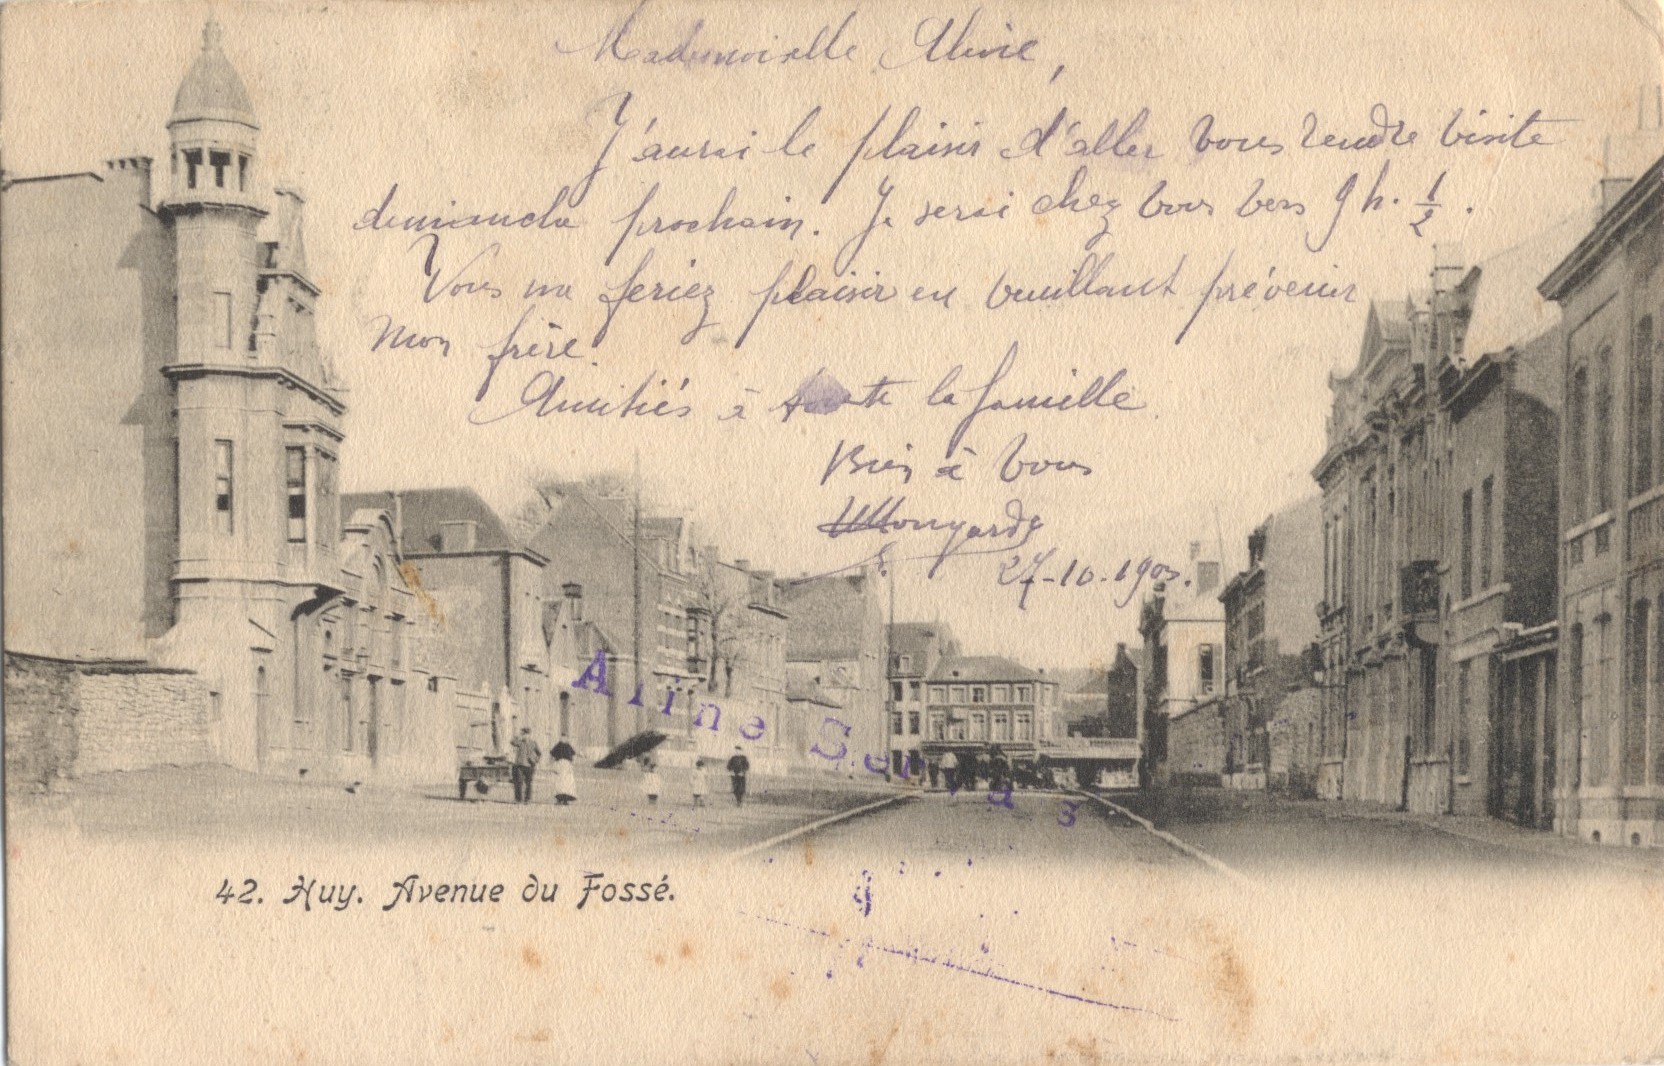 Mademoiselle
J'aurai le plaisir d'aller vous rendre visite
dimanche prochain. Je serai chez vous vers 9 h. 1/2.
Vous me feriez plaisir en veuillant prévenir
mon frère.
Amitiés à toute la famille
Bien à vous
27-10-1903.
Aline Servais
42. Huy. Avenue du Fossé.